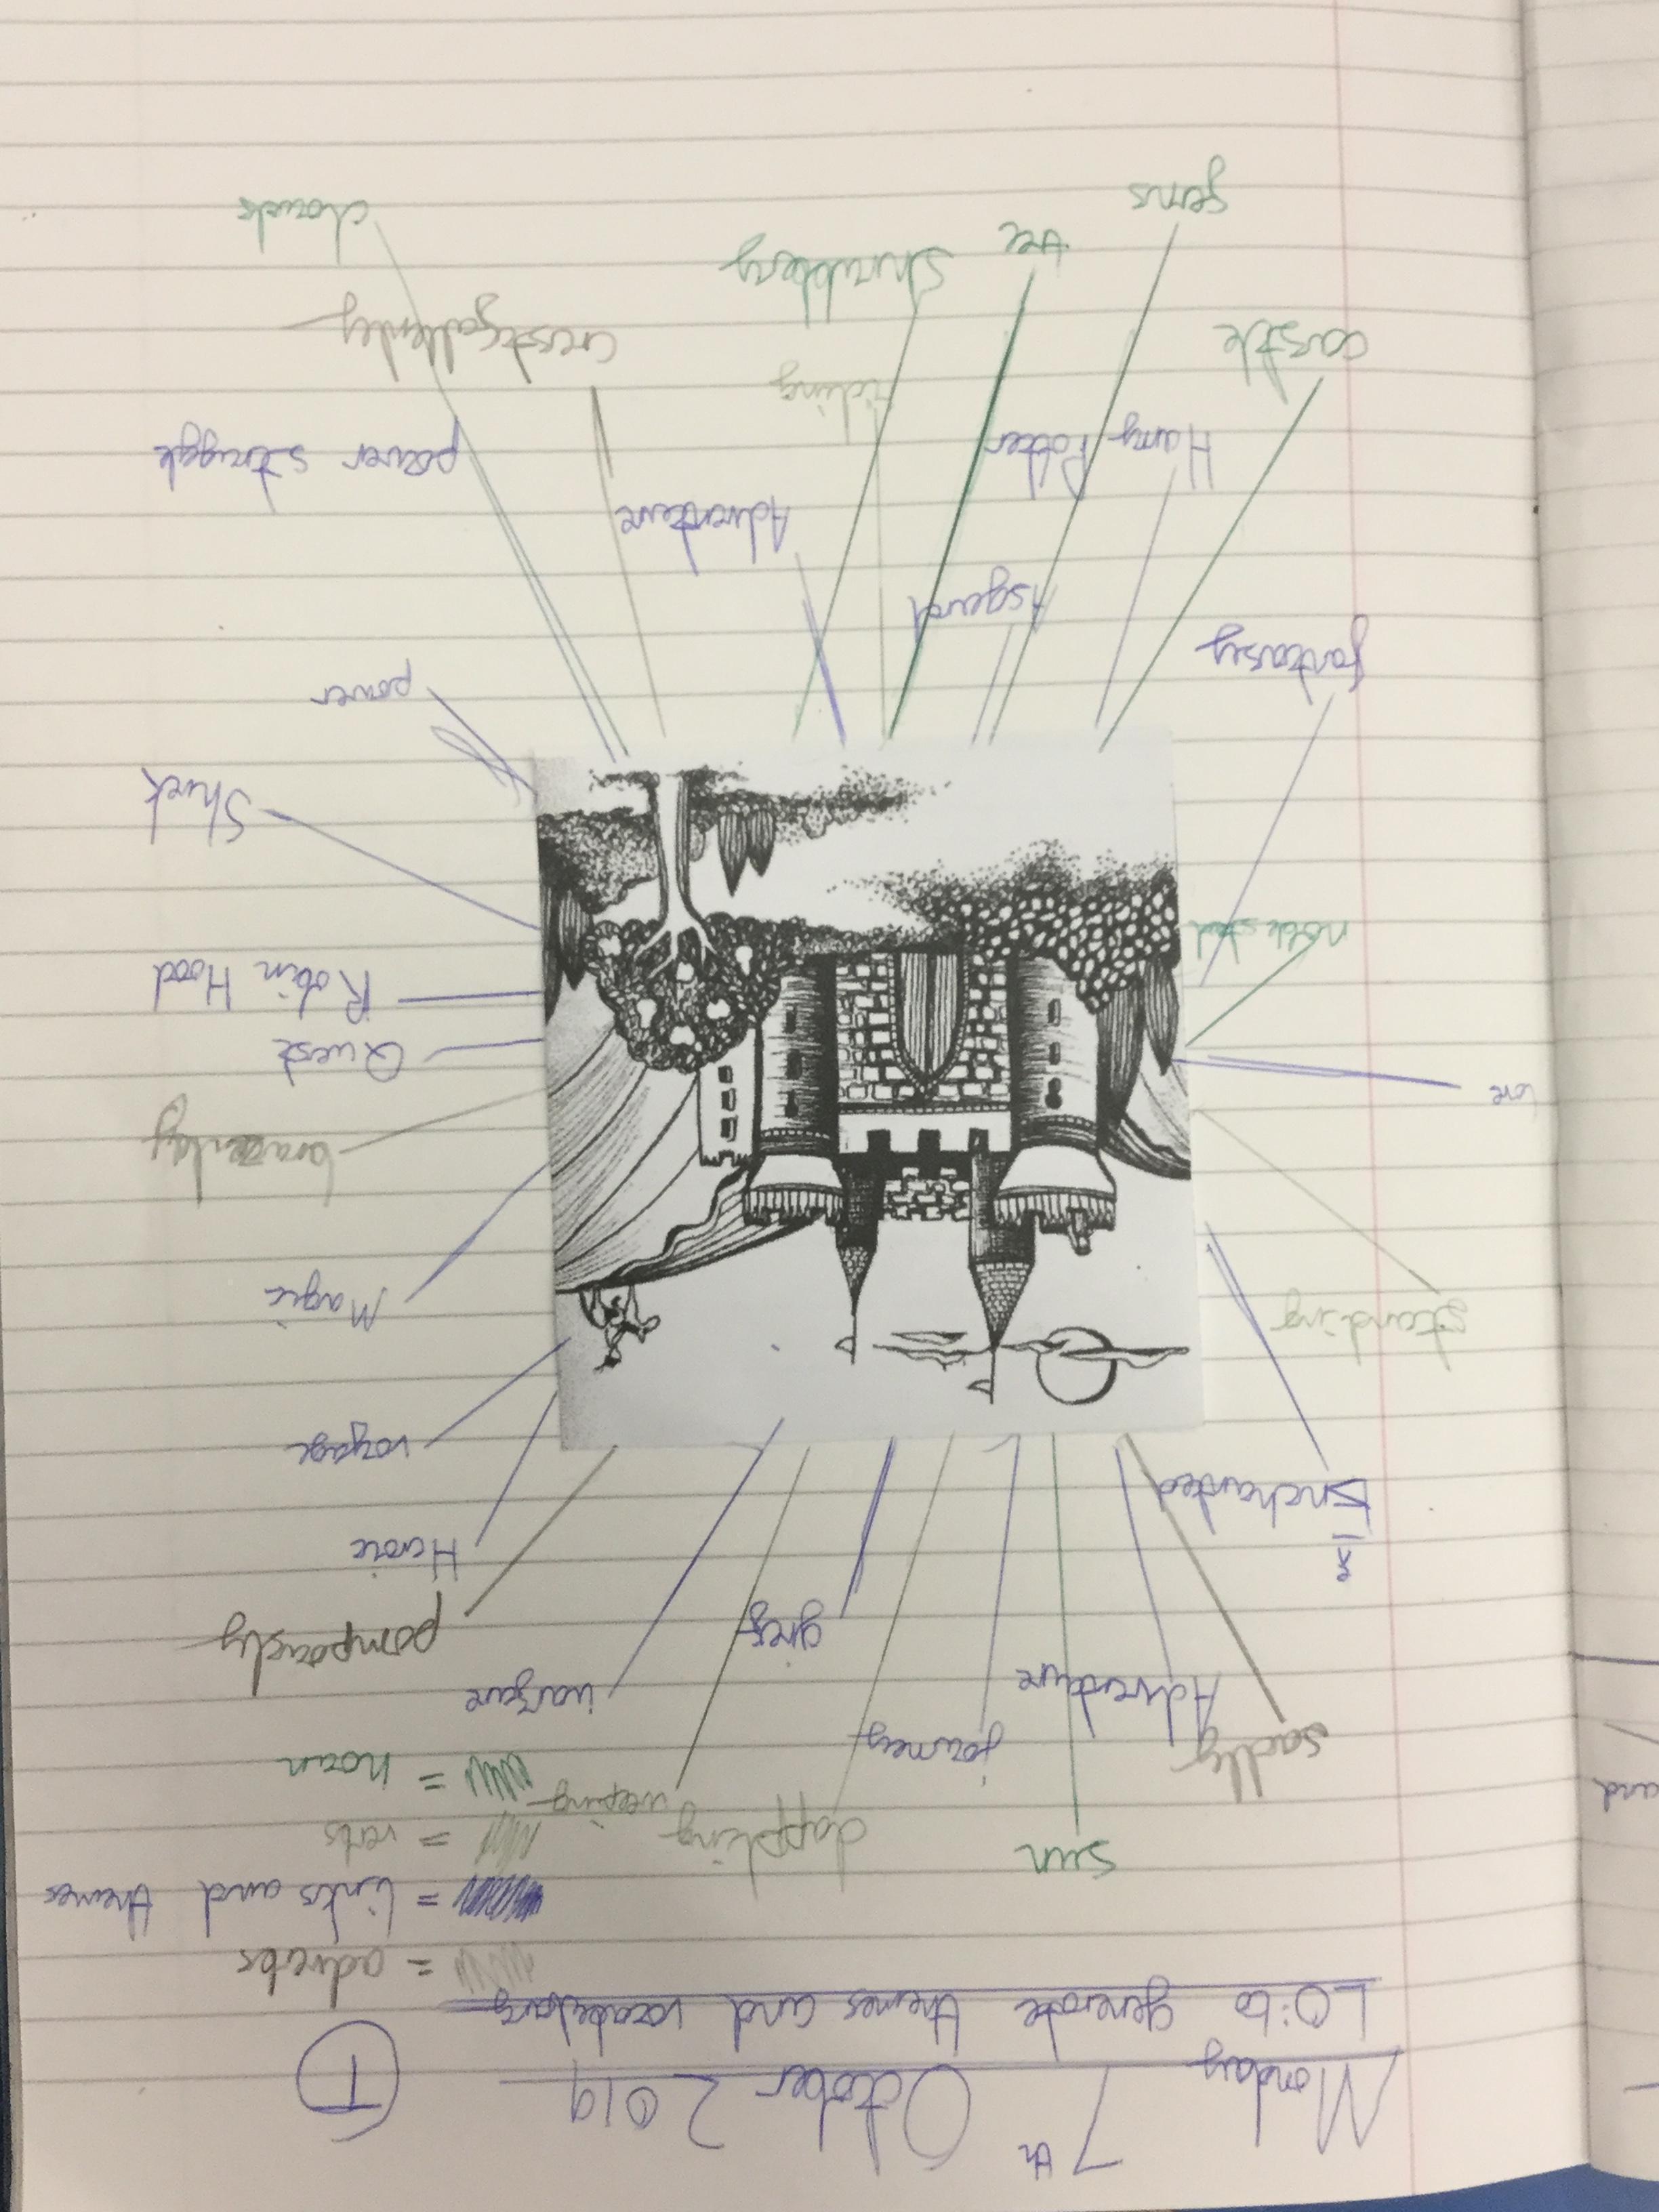 Monday 7th October 2019
T
LO: to generate themes and vocabulary
= adverbs
= links and themes
= verbs
= noun
sun
dappling
weeping
sadly
Adventure
journey
pompously
Enchanted
Heroic
voyage
standing
Magic
love
Quest
Robin Hood
Shrek
fantasey
power
Asgard
Adventure
Harry Potter
power struggle
castle
riding
crestfallenley
gems
tree
Shrubbery
clouds
and